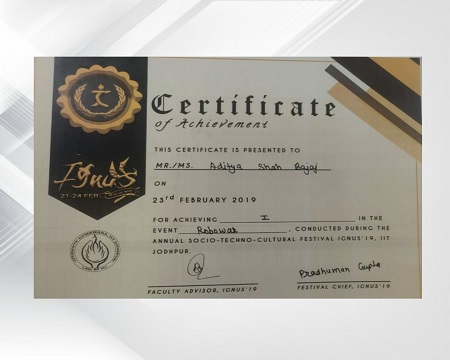 Certificate
of Achievement
THIS CERTIFICATE IS PRESENTED TO
MR./MS. Aditya Shah Bajaj
ON
23rd FEBRUARY 2019
FOR ACHIEVING I IN THE
EVENT Robowar, CONDUCTED DURING THE
ANNUAL SOCIO-TECHNO-CULTURAL FESTIVAL IGNUS'19, IIT
JODHPUR.
Ignus
21-24 FEB
Pradhuman Gupta
FACULTY ADVISOR, IGNUS'19
FESTIVAL CHIEF, IGNUS'19